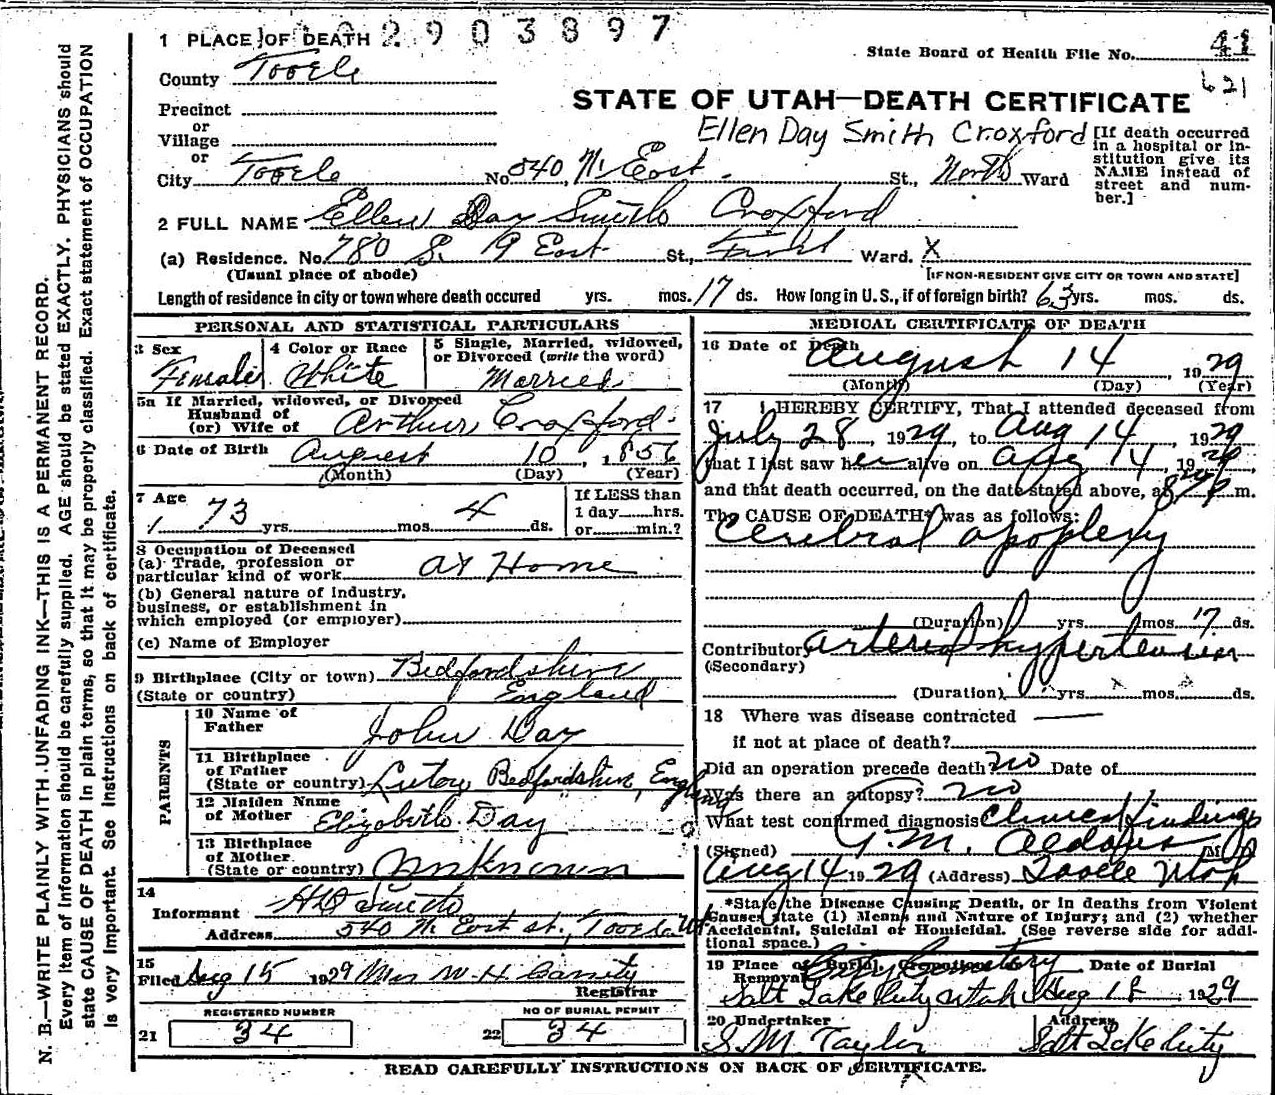 2903897
1 PLACE OF DEATH
State Board of Health File No. 41
County Tooele
621
STATE OF UTAH—DEATH CERTIFICATE
Precinct
or
Village
or
Ellen Day Smith Croxford
[If death occurred in a hospital or institution give its NAME instead of street and number.]
City Tooele No. 540 N. East St., North Ward
2 FULL NAME Ellen Day Smith Croxford
(a) Residence. No. 780 S. 19 East St., First Ward. X
(Usual place of abode)
[IF NON-RESIDENT GIVE CITY OR TOWN AND STATE]
Length of residence in city or town where death occured yrs. mos. 17 ds. How long in U.S., if of foreign birth? 63 yrs. mos. ds.
PERSONAL AND STATISTICAL PARTICULARS
3 Sex
Female
4 Color or Race
White
5 Single, Married, widowed,
or Divorced (write the word)
Married
5a If Married, widowed, or Divorced
Husband of
(or) Wife of Arthur Croxford
6 Date of Birth August 10, 1856
(Month) (Day) (Year)
7 Age
73 yrs. mos. 4 ds.
If LESS than
1 day hrs.
or min.?
8 Occupation of Deceased
(a) Trade, profession or
particular kind of work at Home
(b) General nature of industry,
business, or establishment in
which employed (or employer)
(c) Name of Employer
9 Birthplace (City or town) Bedfordshire
(State or country) England
PARENTS
10 Name of
Father John Day
11 Birthplace
of Father
(State or country) Luton Bedfordshire, England
12 Maiden Name
of Mother Elizabeth Day
13 Birthplace
of Mother.
(State or country) Unknown
14
Informant Smith
Address 540 N. East st., Tooele Ut
15
Filed Aug 15 1929 Mrs W. H. Cassity
Registrar
REGISTERED NUMBER
21 34
NO OF BURIAL PERMIT
22 34
MEDICAL CERTIFICATE OF DEATH
16 Date of Death
August 14, 1929
(Month) (Day) (Year)
17 I HEREBY CERTIFY, That I attended deceased from
July 28, 1929, to Aug 14, 1929
that I last saw her alive on Aug 14, 1929,
and that death occurred, on the date stated above, at 8 p m.
The CAUSE OF DEATH* was as follows:
Cerebral apoplexy
(Duration) yrs. mos. 17 ds.
Contributory Arterial hypertension
(Secondary)
(Duration) yrs. mos. ds.
18 Where was disease contracted
if not at place of death?
Did an operation precede death? no Date of
Was there an autopsy? no
What test confirmed diagnosis Clinical findings
(Signed) T.M. Aldous M D
Aug 14 1929 (Address) Tooele Utah
*State the Disease Causing Death, or in deaths from Violent
Causes, state (1) Means and Nature of Injury; and (2) whether
Accidental, Suicidal or Homicidal. (See reverse side for additional space.)
19 Place of Burial, Cremation or Date of Burial
Removal City Cemetery
Salt Lake City Utah Aug 18 1929
20 Undertaker Address
S.M. Taylor Salt Lake City
READ CAREFULLY INSTRUCTIONS ON BACK OF CERTIFICATE.
N. B.—WRITE PLAINLY WITH UNFADING INK—THIS IS A PERMANENT RECORD.
Every item of information should be carefully supplied. AGE should be stated EXACTLY. PHYSICIANS should
state CAUSE OF DEATH in plain terms, so that it may be properly classified. Exact statement of OCCUPATION
is very important. See instructions on back of certificate.